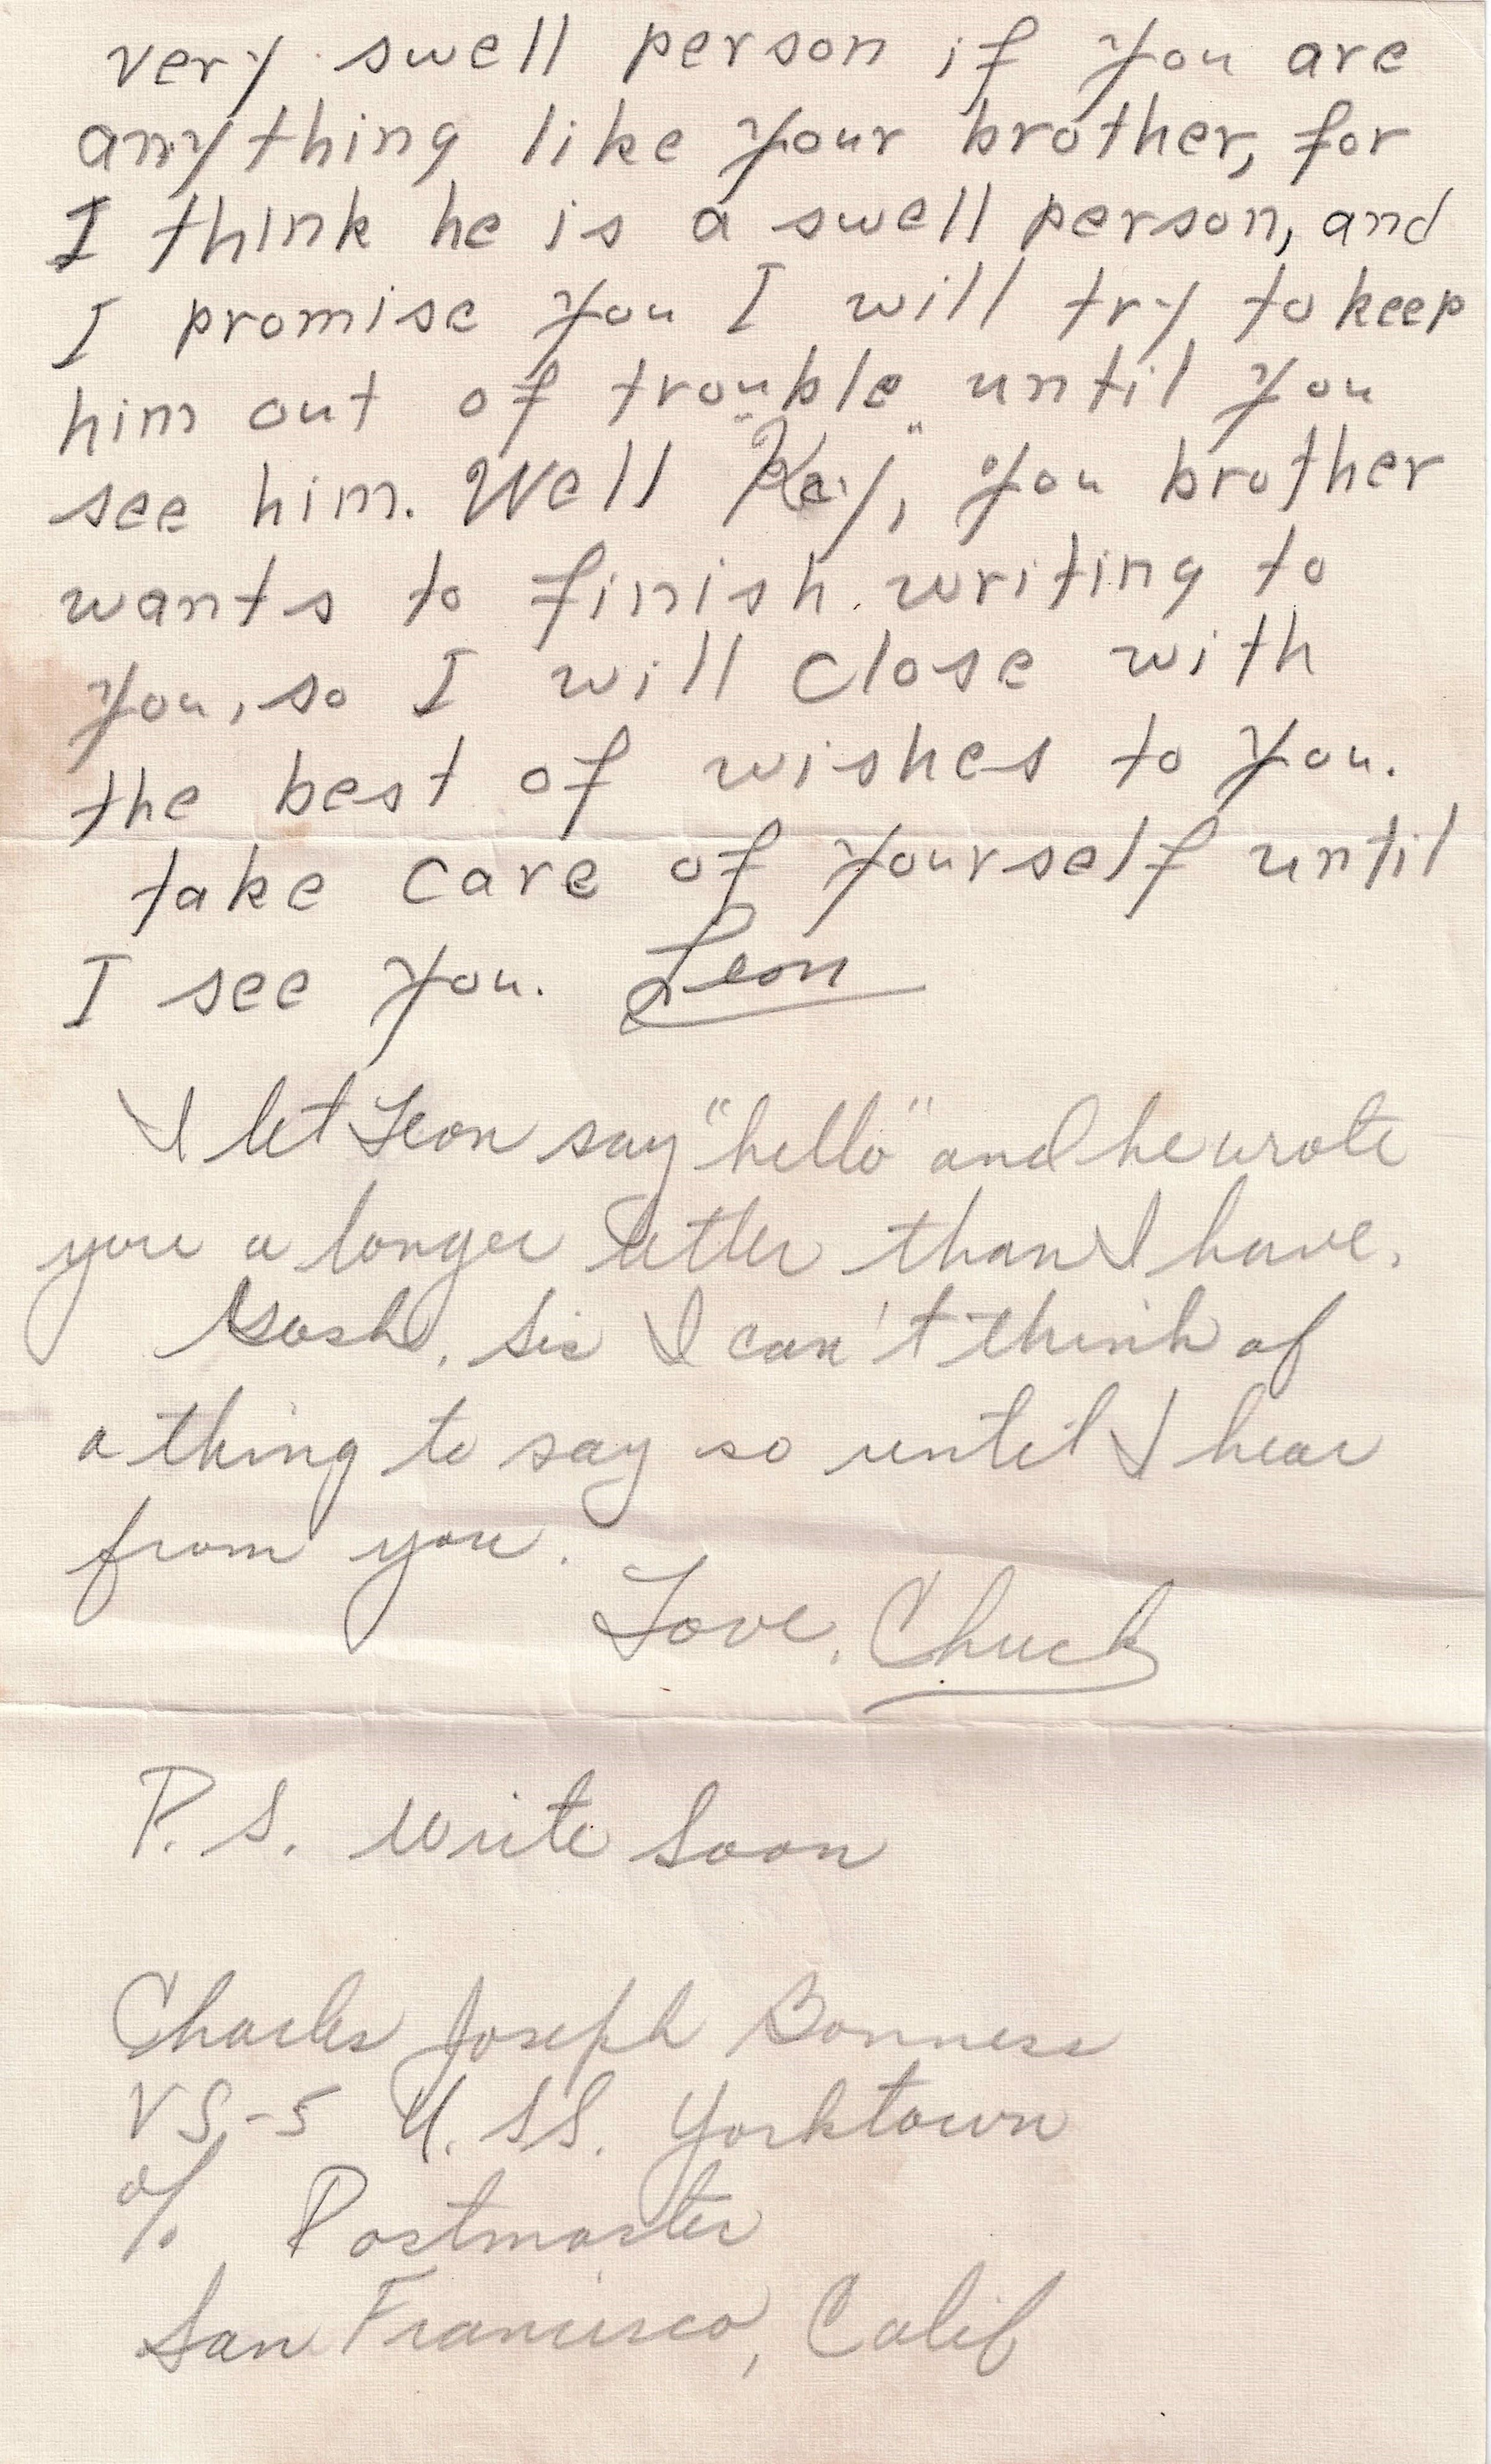 very swell person if you are
anything like your brother, for
I think he is a swell person, and
I promise you I will try to keep
him out of trouble until you
see him. Well "Kay", you brother
wants to finish writing to
you, so I will close with
the best of wishes to you.
take care of yourself until
I see you. Leon
I let Leon say "hello" and he wrote
you a longer letter than I have.
Gosh, Sis I can't think of
a thing to say so until I hear
from you.
Love, Chuck
P.S. Write Soon
Charles Joseph Bonness
VS-5 U.S.S. Yorktown
c/o Postmaster
San Francisco, Calif